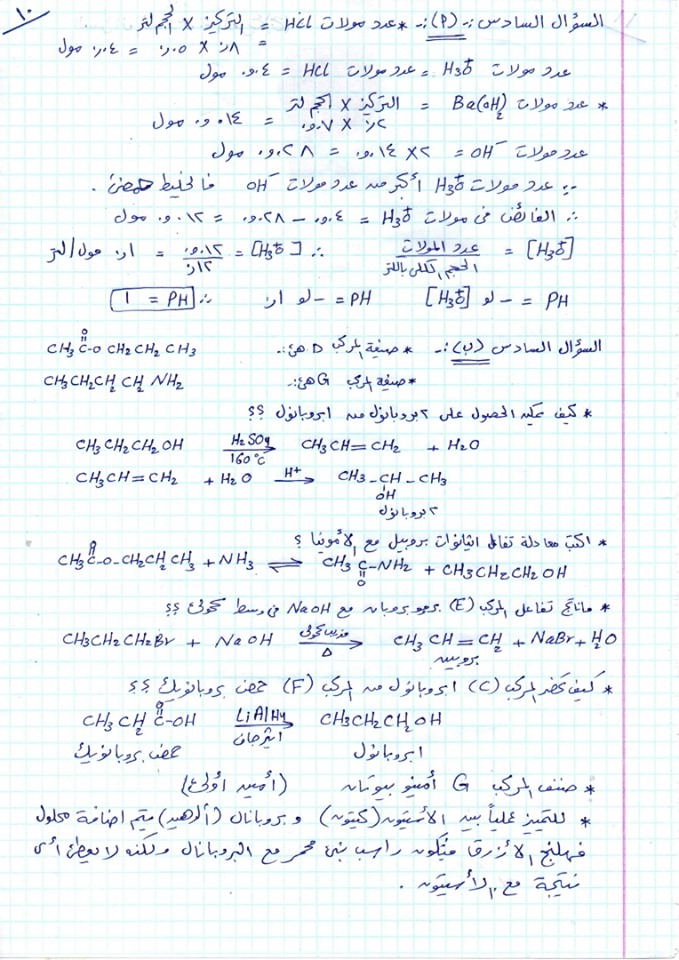 ١٠
السؤال السادس :- (٢) :- * عدد مولات HCl = التركيز × الحجم لتر
= ٨ر × ٠٥ر = ٠٤ر مول
عدد مولات H3O+ = عدد مولات HCl = ٠٤ر مول
* عدد مولات Ba(OH)2 = التركيز × الحجم لتر
٢ر × ٠٧ر = ٠١٤ر مول
عدد مولات OH- = ٢ × ٠١٤ر = ٠٢٨ر مول
∵ عدد مولات H3O+ أكبر من عدد مولات OH- فالخليط حمضي .
∴ الفائض في مولات H3O+ = ٠٤ر - ٠٢٨ر = ٠١٢ر مول
[H3O+] = عدد المولات / الحجم الكلي باللتر ∴ [H3O+] = ٠١٢ر / ١٢ر = ١ر مول/لتر
PH = - لو [H3O+] PH = - لو ١ر ∴ PH = 1
السؤال السادس (ب) :- * صيغة المركب D هي :- CH3 C(=O)-O CH2CH2 CH3
* صيغة المركب G هي :- CH3CH2CH2 CH2 NH2
* كيف يمكن الحصول على ٢ بروبانول من ١ بروبانول ؟؟
CH3CH2CH2OH —H2SO4 / 160°C→ CH3CH=CH2 + H2O
CH3CH=CH2 + H2O —H+→ CH3-CH(OH)-CH3
٢ بروبانول
* اكتب معادلة تفاعل ايثانوات بروبيل مع الأمونيا ؟
CH3 C(=O)-O-CH2CH2CH3 + NH3 ⇌ CH3 C(=O)-NH2 + CH3CH2CH2OH
* ما ناتج تفاعل المركب (E) بروموبروبان مع NaOH في وسط كحولي ؟؟
CH3CH2CH2Br + NaOH —مذيب كحولي / Δ→ CH3 CH=CH2 + NaBr + H2O
بروبين
* كيف تحضر المركب (C) ١ بروبانول من المركب (F) حمض بروبانويك ؟؟
CH3 CH2 C(=O)-OH —LiAlH4 / ايثر جاف→ CH3CH2CH2OH
حمض بروبانويك ١ بروبانول
* صنف المركب G أمينو بيوتان (أمين أولي)
* للتمييز عملياً بين الأسيتون (كيتون) و بروبانال (ألدهيد) يتم اضافة محلول
فهلنج الأزرق فيتكون راسب بني محمر مع البروبانال ولكنه لا يعطي أي
نتيجة مع الأسيتون .